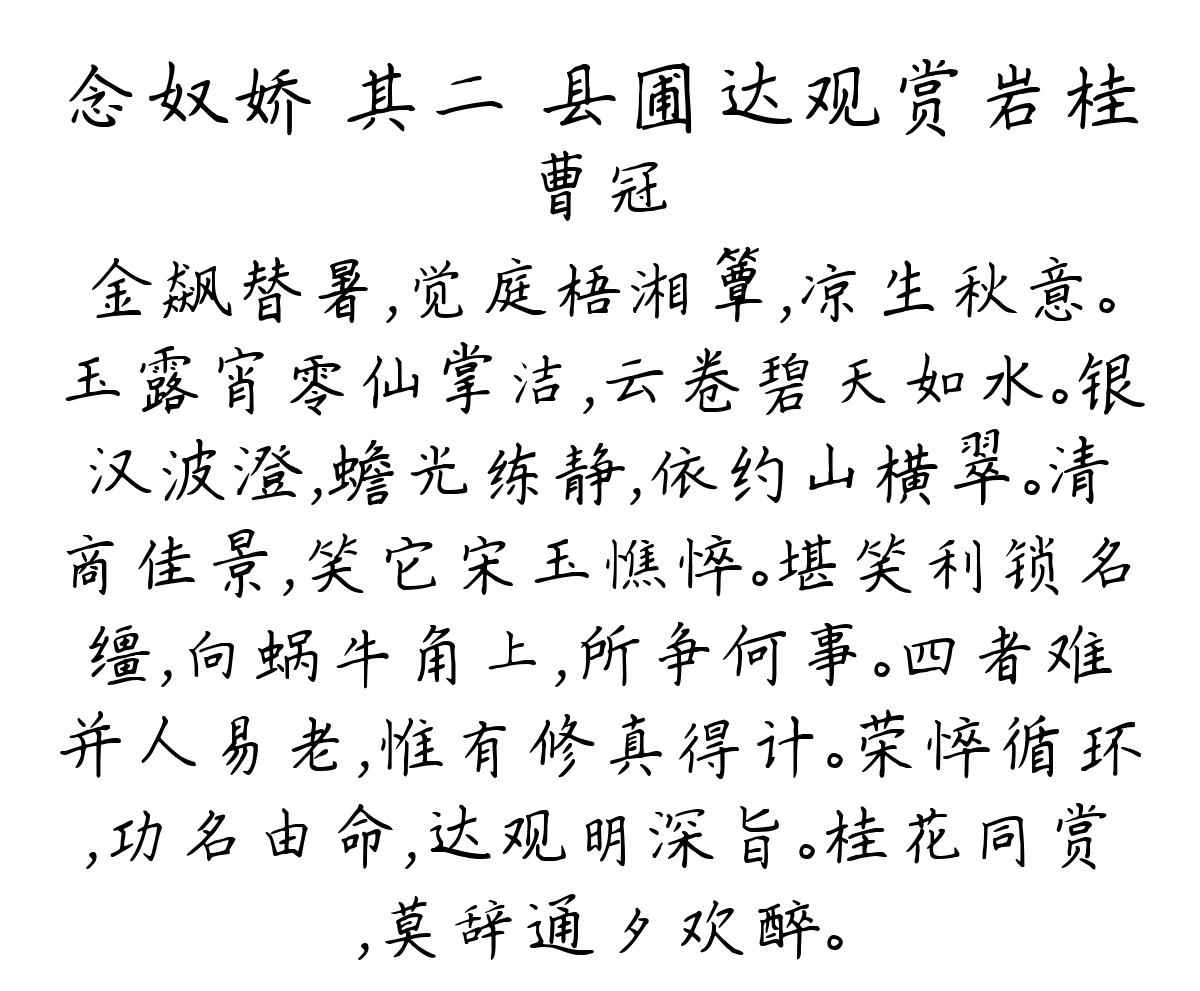 念奴娇 其二 县圃达观赏岩桂
曹冠
金飙替暑,觉庭梧湘簟,凉生秋意。
玉露宵零仙掌洁,云卷碧天如水。银
汉波澄,蟾光练静,依约山横翠。清
商佳景,笑它宋玉憔悴。堪笑利锁名
缰,向蜗牛角上,所争何事。四者难
并人易老,惟有修真得计。荣悴循环
,功名由命,达观明深旨。桂花同赏
,莫辞通夕欢醉。